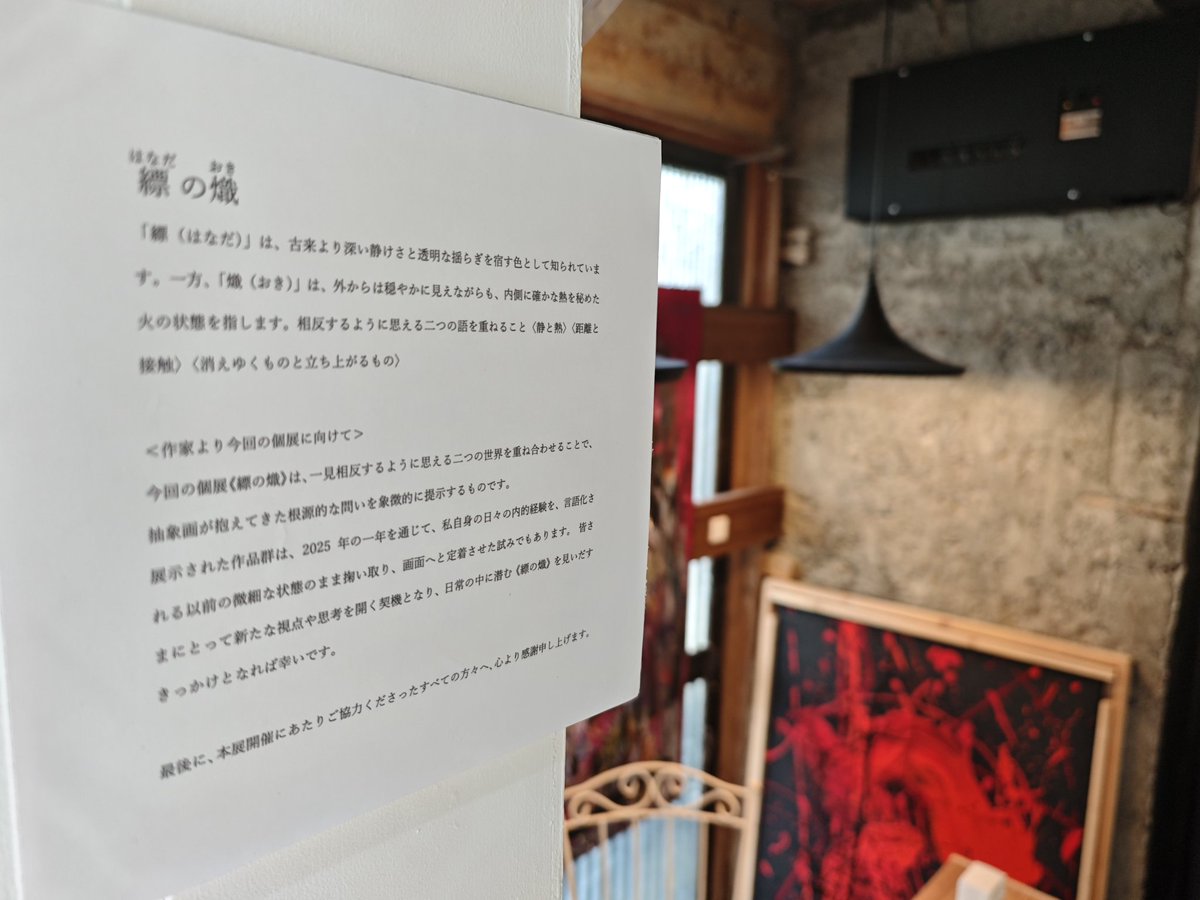 はなだ おき
縹の熾
「縹（はなだ）」は、古来より深い静けさと透明な揺らぎを宿す色として知られていま
す。一方、「熾（おき）」は、外からは穏やかに見えながらも、内側に確かな熱を秘めた
火の状態を指します。相反するように思える二つの語を重ねること〈静と熱〉〈距離と
接触〉〈消えゆくものと立ち上がるもの〉
＜作家より今回の個展に向けて＞
今回の個展《縹の熾》は、一見相反するように思える二つの世界を重ね合わせることで、
抽象画が抱えてきた根源的な問いを象徴的に提示するものです。
展示された作品群は、2025 年の一年を通じて、私自身の日々の内的経験を、言語化さ
れる以前の微細な状態のまま掬い取り、画面へと定着させた試みでもあります。皆さ
まにとって新たな視点や思考を開く契機となり、日常の中に潜む《縹の熾》を見いだす
きっかけとなれば幸いです。
最後に、本展開催にあたりご協力くださったすべての方々へ、心より感謝申し上げます。